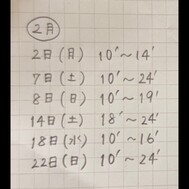 2月
2日(月) 10′～14′
7日(土) 10′～24′
8日(日) 10′～19′
14日(土) 18′～24′
18日(水) 10′～16′
22日(日) 10′～24′